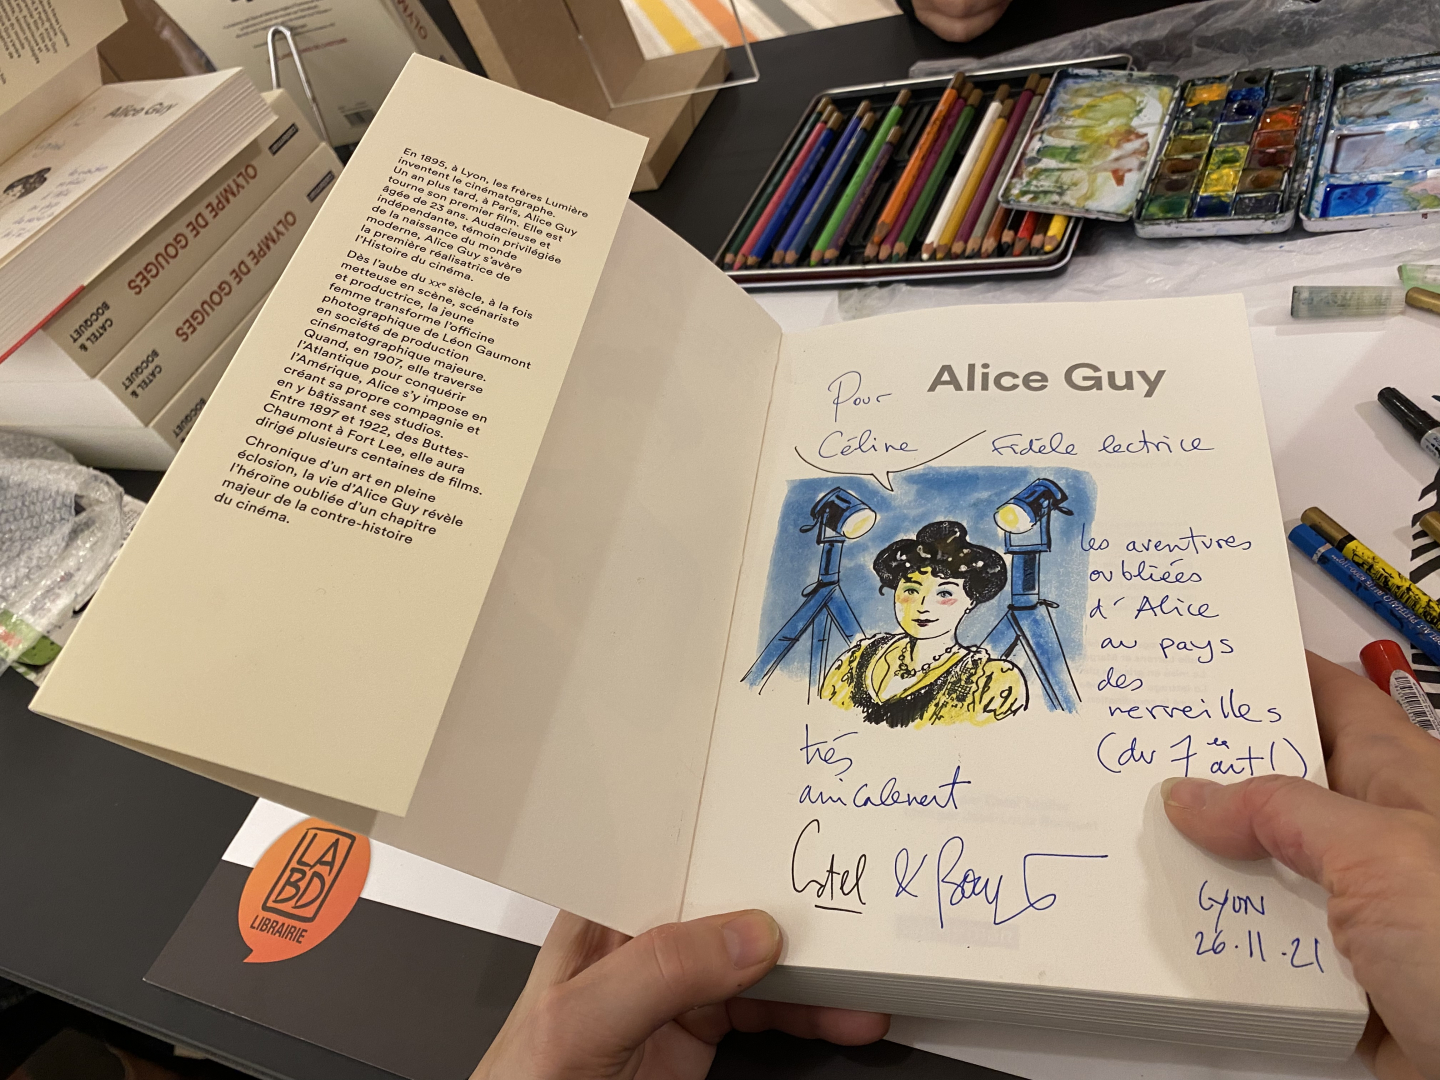 Alice Guy
OLYMPE DE GOUGES
CATEL &
BOCQUET
OLYMPE DE GOUGES
CATEL &
BOCQUET
En 1895, à Lyon, les frères Lumière
inventent le cinématographe.
Un an plus tard, à Paris, Alice Guy
tourne son premier film. Elle est
âgée de 23 ans. Audacieuse et
indépendante, témoin privilégiée
de la naissance du monde
moderne, Alice Guy s'avère
la première réalisatrice de
l'Histoire du cinéma.
Dès l'aube du XXe siècle, à la fois
metteuse en scène, scénariste
et productrice, la jeune
femme transforme l'officine
photographique de Léon Gaumont
en société de production
cinématographique majeure.
Quand, en 1907, elle traverse
l'Atlantique pour conquérir
l'Amérique, Alice s'y impose en
créant sa propre compagnie et
en y bâtissant ses studios.
Entre 1897 et 1922, des Buttes-
Chaumont à Fort Lee, elle aura
dirigé plusieurs centaines de films.
Chronique d'un art en pleine
éclosion, la vie d'Alice Guy révèle
l'héroïne oubliée d'un chapitre
majeur de la contre-histoire
du cinéma.
Alice Guy
Pour
Céline Fidèle lectrice
les aventures
oubliées
d'Alice
au pays
des
merveilles
(du 7e art!)
très
amicalement
Catel & Bocquet
Lyon
26.11.21
LA
BD
LIBRAIRIE